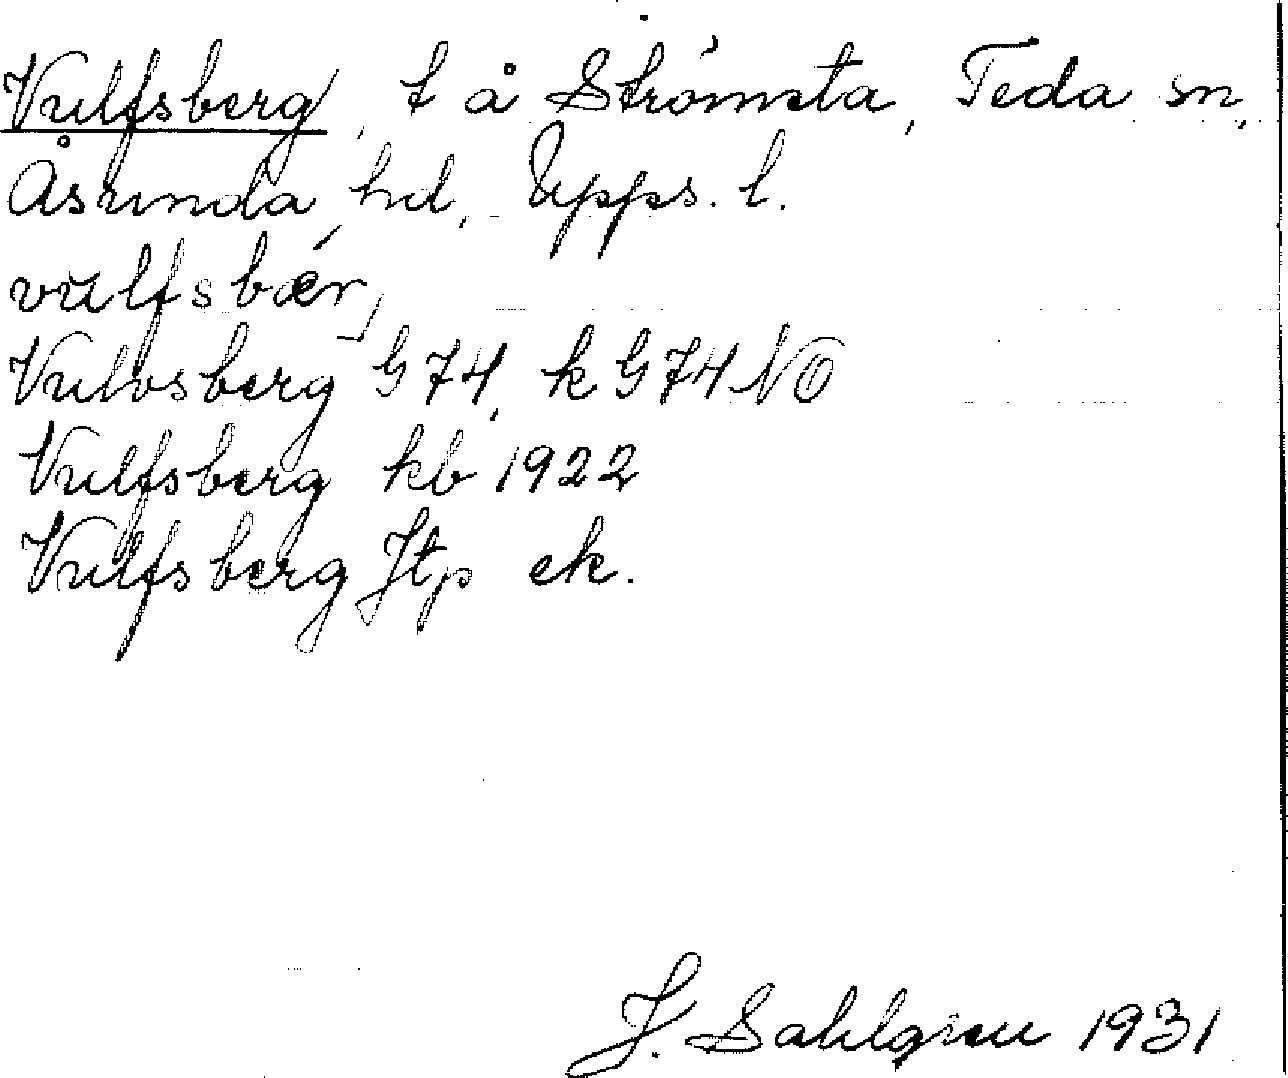 Vulfsberg, t å Strömsta, Teda sn,
Åsunda hd, Upps. l.
vulfsbær,
Vulvsberg G 74, k G 74 NO
Vulfsberg kb 1922
Vulfsberg Jtp ek.
J. Sahlgren 1931